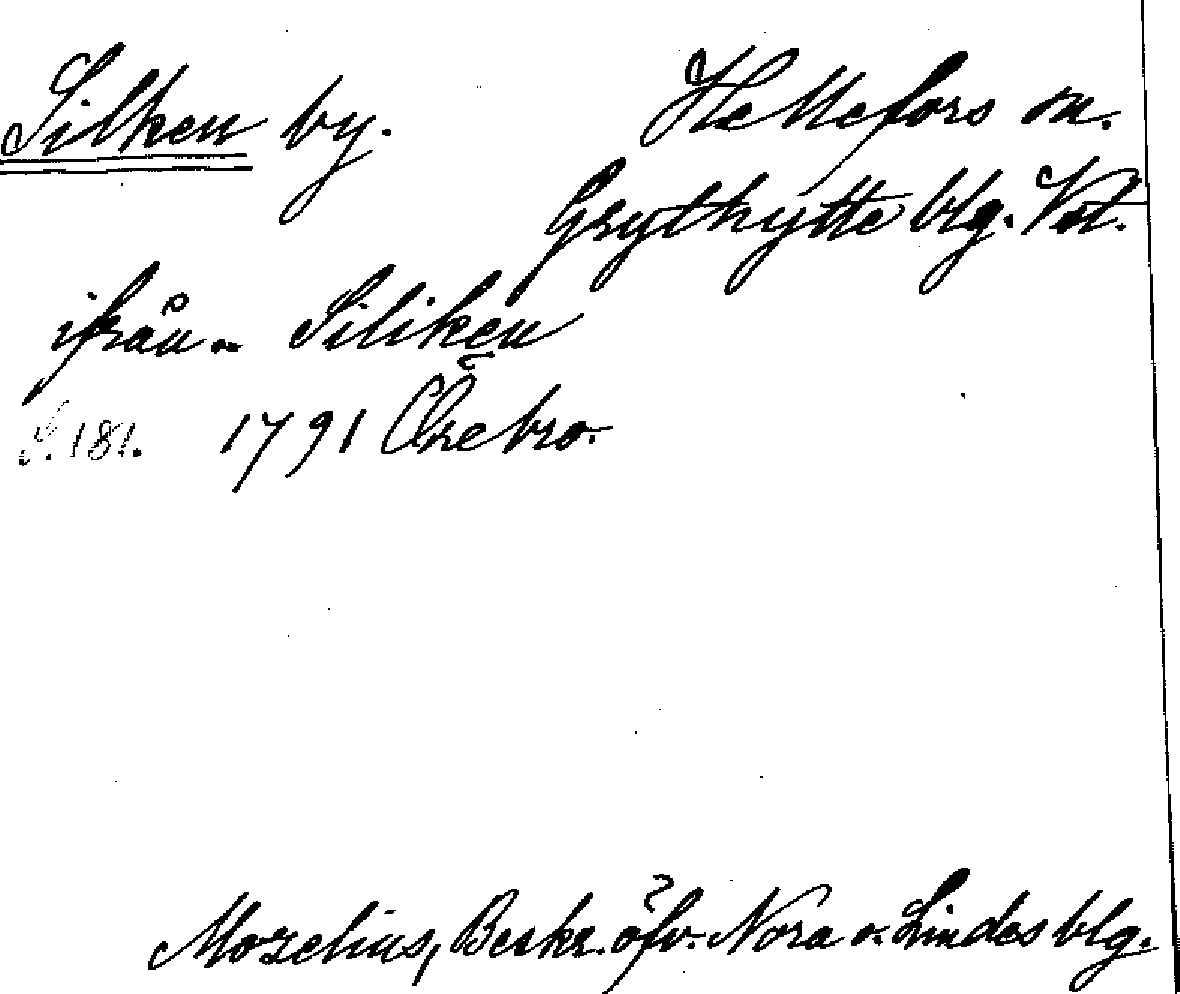 Silken by. Hellefors sn.
Grythytte blg. Vstl.
ifrån ~ Siliken
S. 181. 1791 Örebro.
Mozelius, Beskr. öfv. Nora o. Lindes blg.